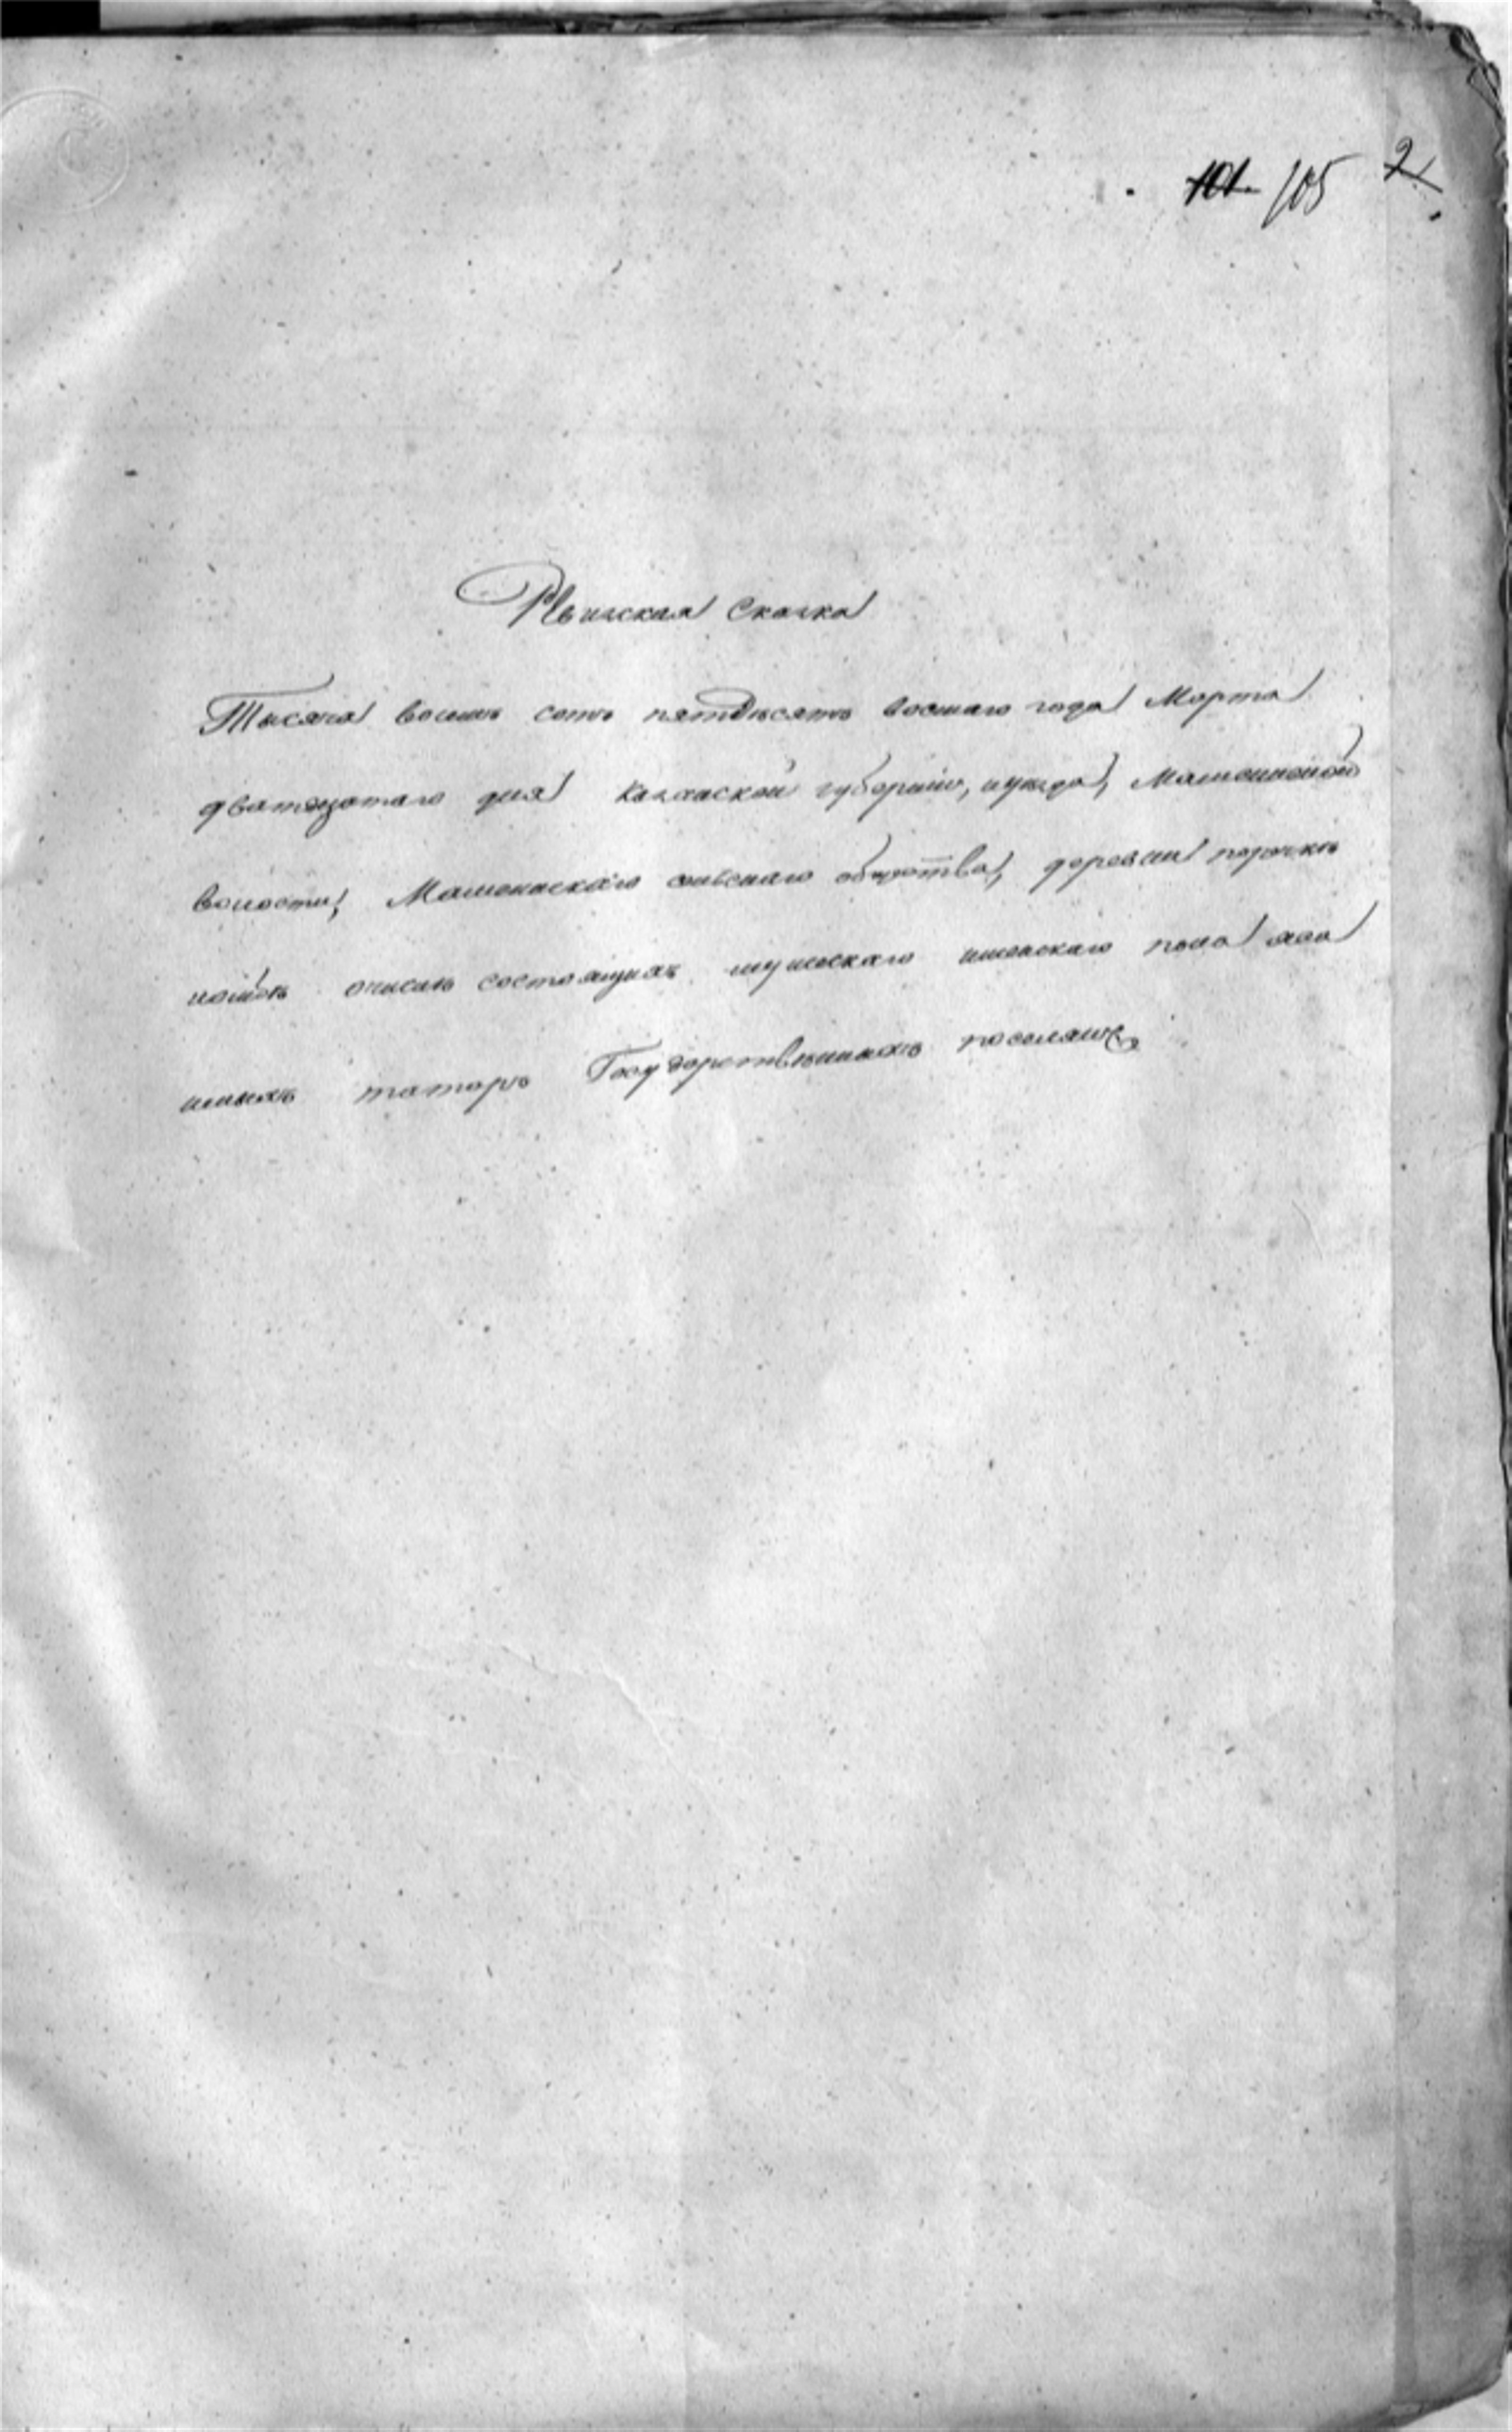 101 105 2
Ревизская Сказка
Тысяча восемь сотъ пятдесятъ восмаго года Марта
дватцатаго дня Казанской губерніи, и уезда, Мамсинской
волости, сельскаго общества, деревни
состоящихъ мужескаго женскаго пола
татаръ Государственныхъ поселянъ